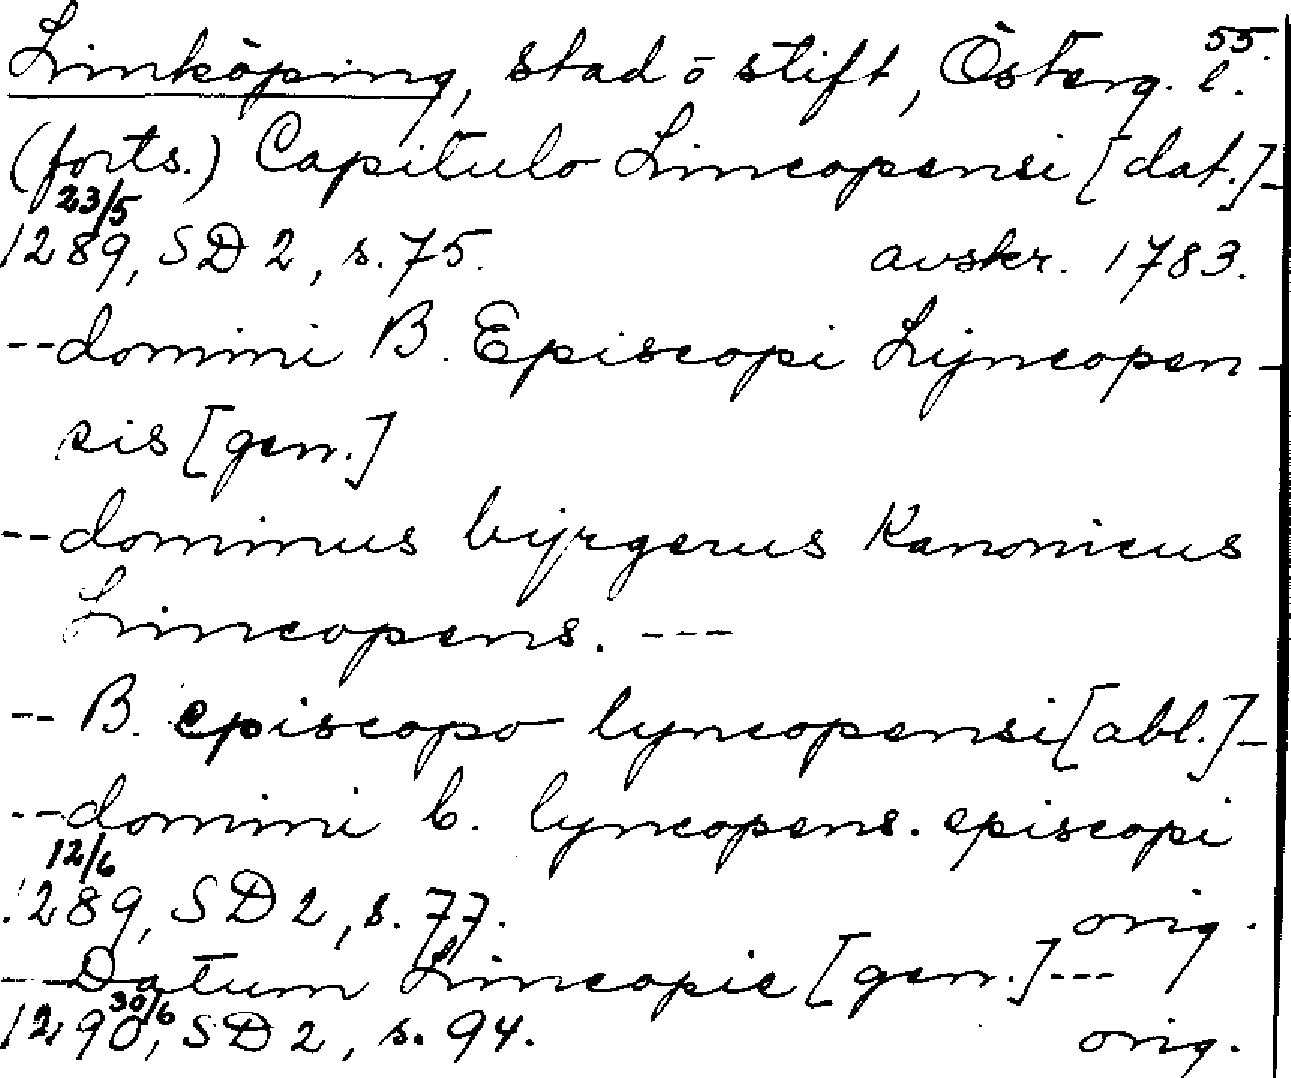 55.
Linköping, stad o stift, Österg. l.
(forts.) Capitulo Lincopensi [dat.]-
23/5
1289, SD 2, s. 75. avskr. 1783.
--domini B. Episcopi Lijncopen-
sis [gen.]
--dominus bijrgerus Kanonicus
Lincopens. ---
-- B. episcopo lyncopensi [abl.]-
--domini b. lyncopens. episcopi
12/6
1289, SD 2, s. 77. orig.
--Datum Lincopie [gen.]---
30/6
1290, SD 2, s. 94. orig.